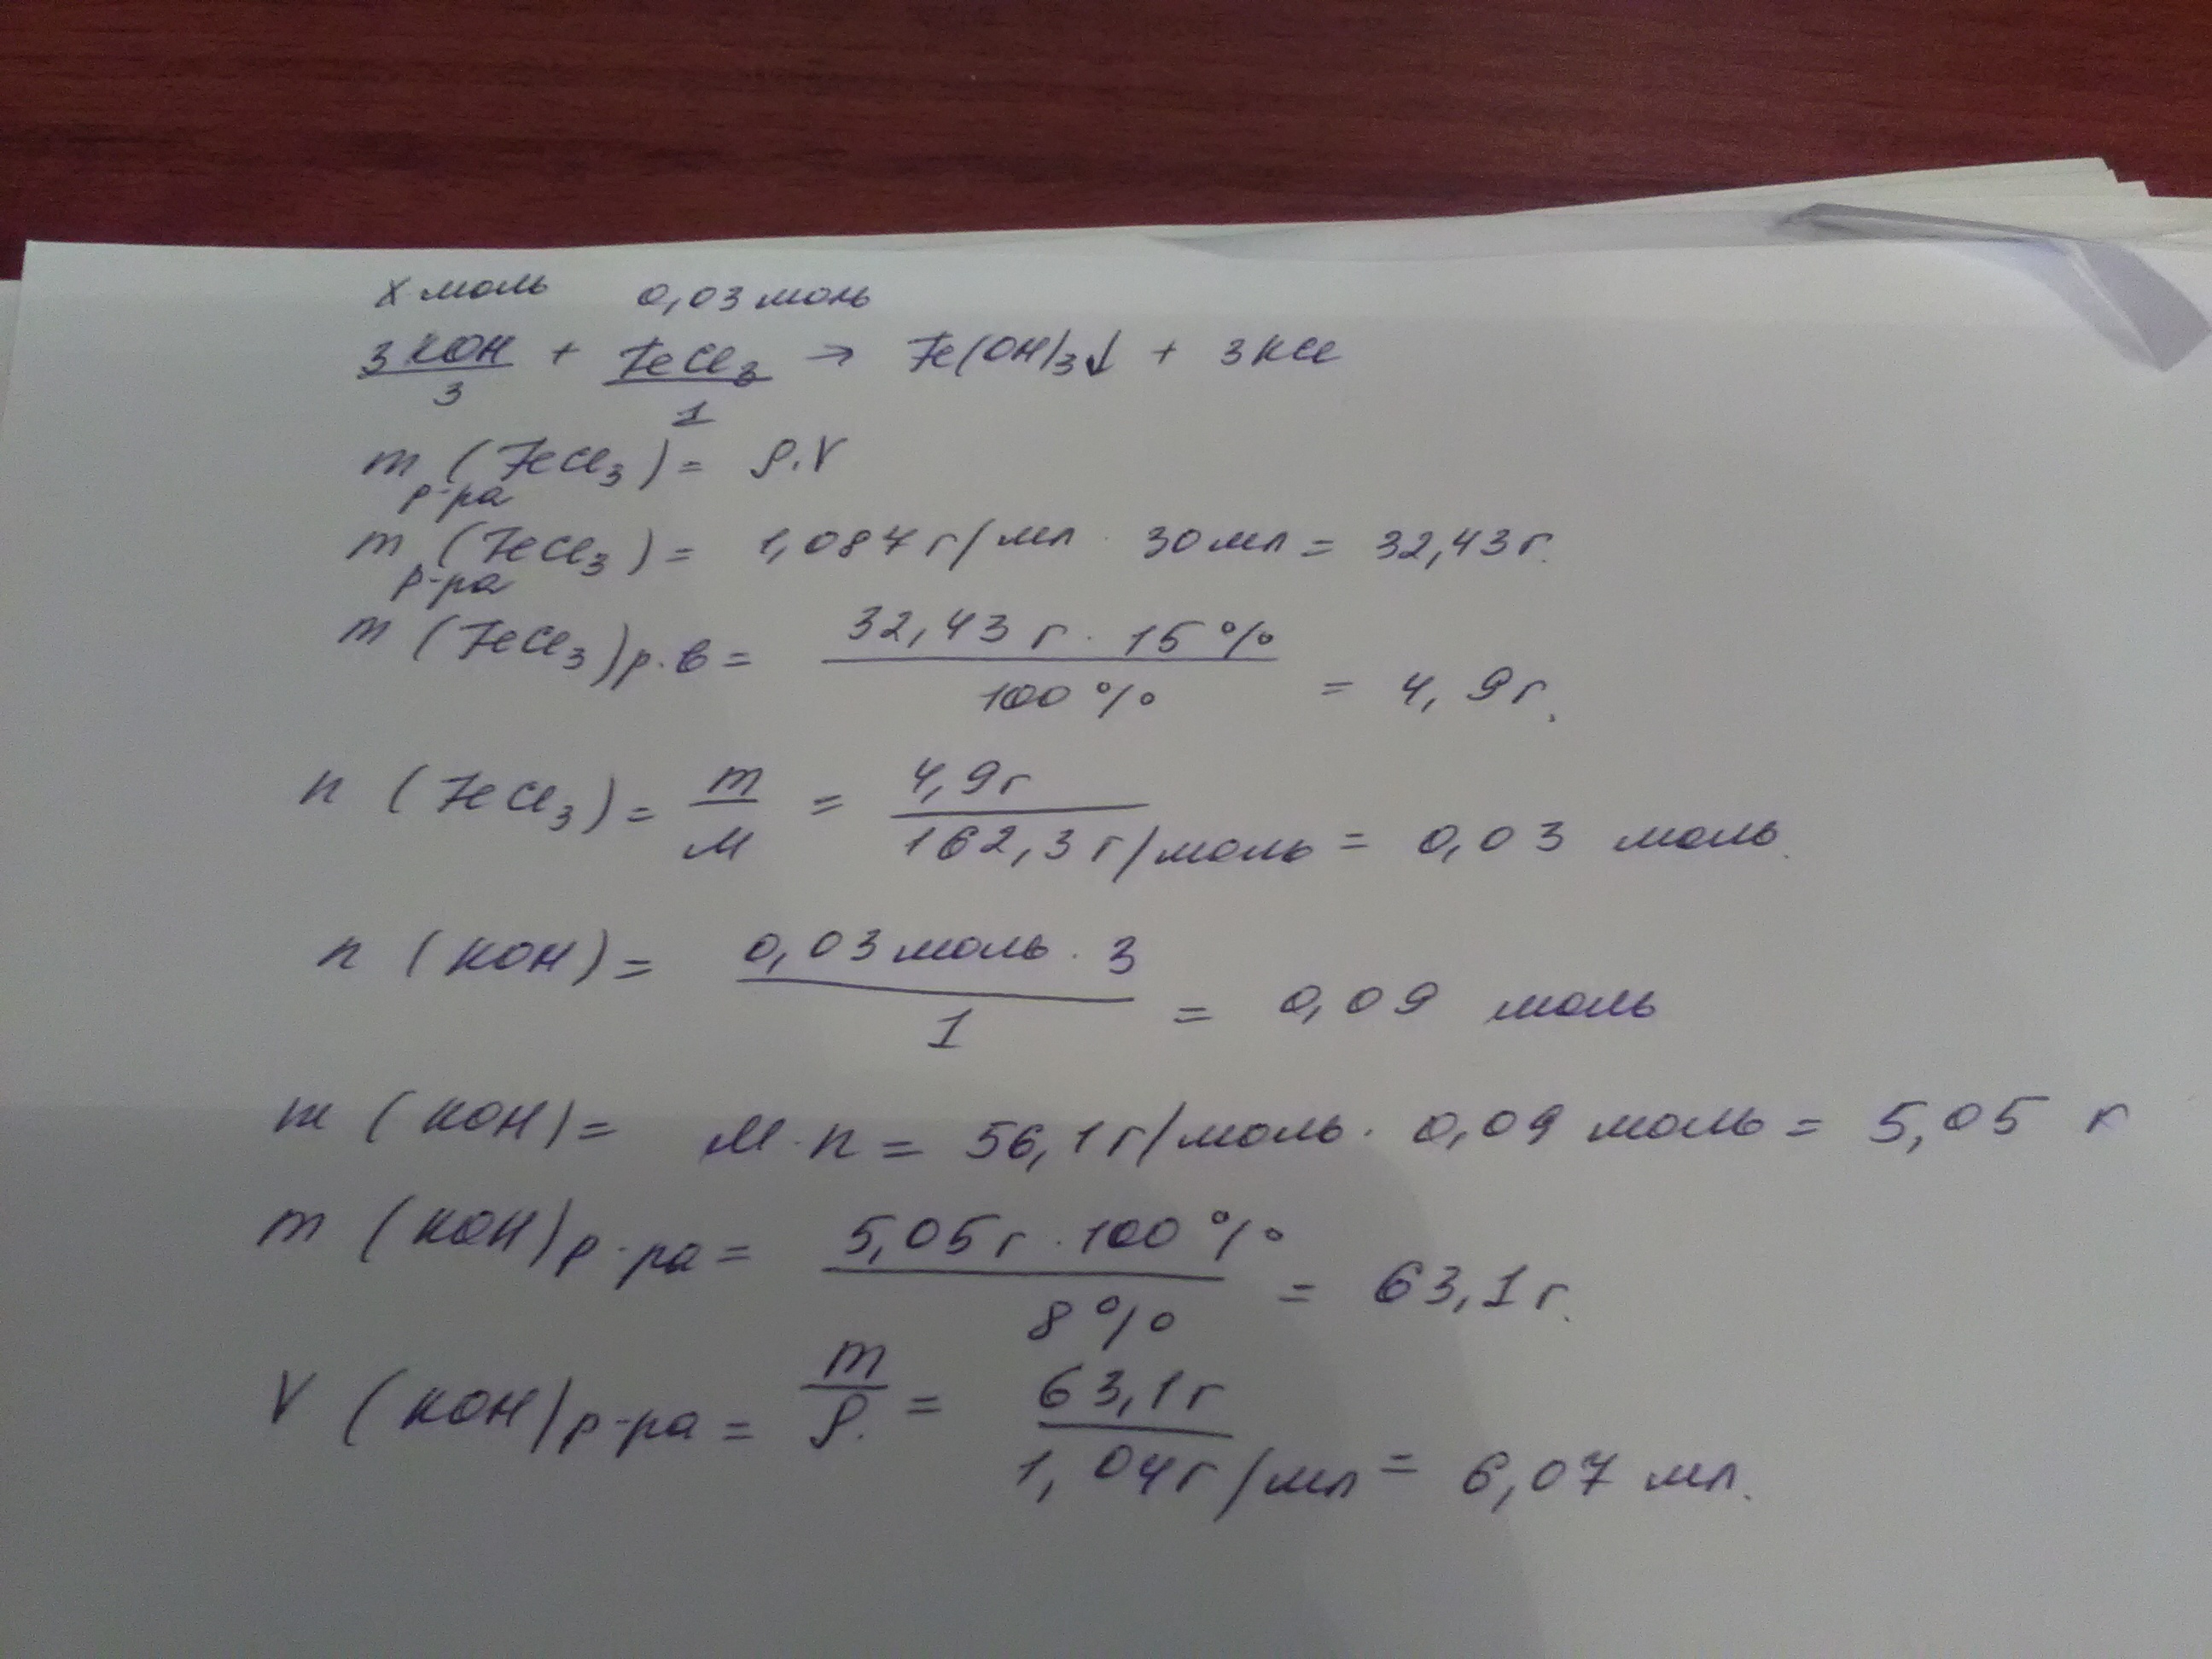 x моль 0,03 моль
3KOH + FeCl₃ → Fe(OH)₃↓ + 3KCl
3 1
m р-ра (FeCl₃) = ρ·V
m р-ра (FeCl₃) = 1,087 г/мл · 30 мл = 32,43 г.
m (FeCl₃) р.в = 32,43 г · 15 % / 100 % = 4,9 г.
n (FeCl₃) = m / M = 4,9 г / 162,3 г/моль = 0,03 моль.
n (KOH) = 0,03 моль · 3 / 1 = 0,09 моль
m (KOH) = M · n = 56,1 г/моль · 0,09 моль = 5,05 г
m (KOH) р-ра = 5,05 г · 100 % / 8 % = 63,1 г.
V (KOH) р-ра = m / ρ. = 63,1 г / 1,04 г/мл = 6,07 мл.